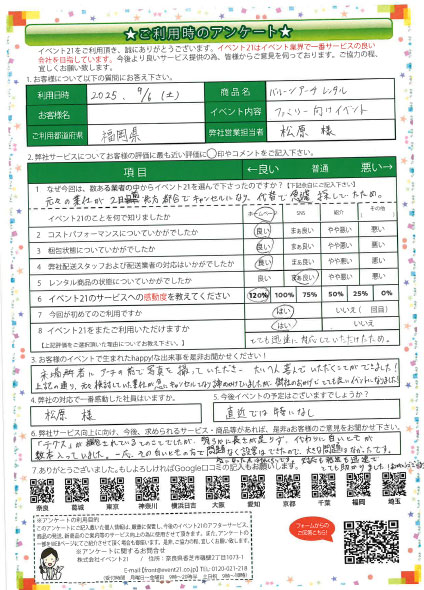 ★ご利用時のアンケート★
イベント21をご利用頂き、誠にありがとうございます。イベント21はイベント業界で一番サービスの良い
会社を目指しています。今後より良いサービス提供の為、皆様からご意見を伺っております。ご協力の程、
宜しくお願い致します。
1.お客様について以下の質問にお答え下さい。
ご利用日時 2025. 9/6 (土) 商品名 バルーンアーチ レンタル
お客様名 イベント内容 ファミリー向けイベント
ご利用都道府県 福岡県 弊社営業担当者 松原 様
2.弊社サービスについてお客様の評価に最も近い評価に○印やコメントをご記入下さい。
項目 ←良い 普通 悪い→
1 なぜ今回は、数ある業者の中からイベント21を選んで下さったのですか?【下記余白にご記入下さい】
元々の業社が 2日前 先方都合でキャンセルになり、代替で急遽 探していたため。
イベント21のことを何で知りましたか ホームページ SNS 紹介 (その他)
2 コストパフォーマンスについていかがでしたか 良い まぁ良い やや悪い 悪い
3 梱包状態についていかがでしたか 良い まぁ良い やや悪い 悪い
4 弊社配送スタッフおよび配送業者の対応はいかがでしたか 良い まぁ良い やや悪い 悪い
5 レンタル商品の状態についていかがでしたか 良い まぁ良い やや悪い 悪い
6 イベント21のサービスへの感動度を教えてください 120% 100% 75% 50% 25% 0%
7 今回が初めてのご利用ですか はい いいえ (回目)
8 イベント21をまたご利用いただけますか はい いいえ
【上記評価をご選択頂いた理由についてお教え下さい。】 とても迅速に対応していただけたため。
3.お客様のイベントで生まれたhappy!な出来事を是非お聞かせください!
来場者にアーチの前で写真を撮っていただき
上記の通り、元々検討していた業社が急にキャンセルになり諦めかけましたが、御社のおかげでとても良いイベントになりました!
4.弊社の対応で一番感動した社員はいますか。 5.今後イベントの予定はございますでしょうか?
松原 様 直近では特になし
6.弊社サービス向上に向け、今後、求められるサービス・商品等があれば、是非お客様のご意見をお聞かせ下さい。
7.ありがとうございました。もしよろしければGoogle口コミの記入もお願いします。
奈良 葛城 東京 神奈川 横浜日吉 大阪 愛知 京都 千葉 福岡 埼玉
※アンケートの利用目的
このアンケートにご記入いただいた個人情報は、厳重に保管し、今後のイベント21のアフターサービス、
商品の発送、新商品のご案内等のサービス向上の為に使用させて頂きます。また、アンケートの
※アンケートに関するお問合せ
株式会社イベント21 / 住所:奈良県香芝市磯壁2丁目1073-1
E-mail【front@event21.co.jp】 TEL:0120-021-218
フォームからの
ご回答はこちら!